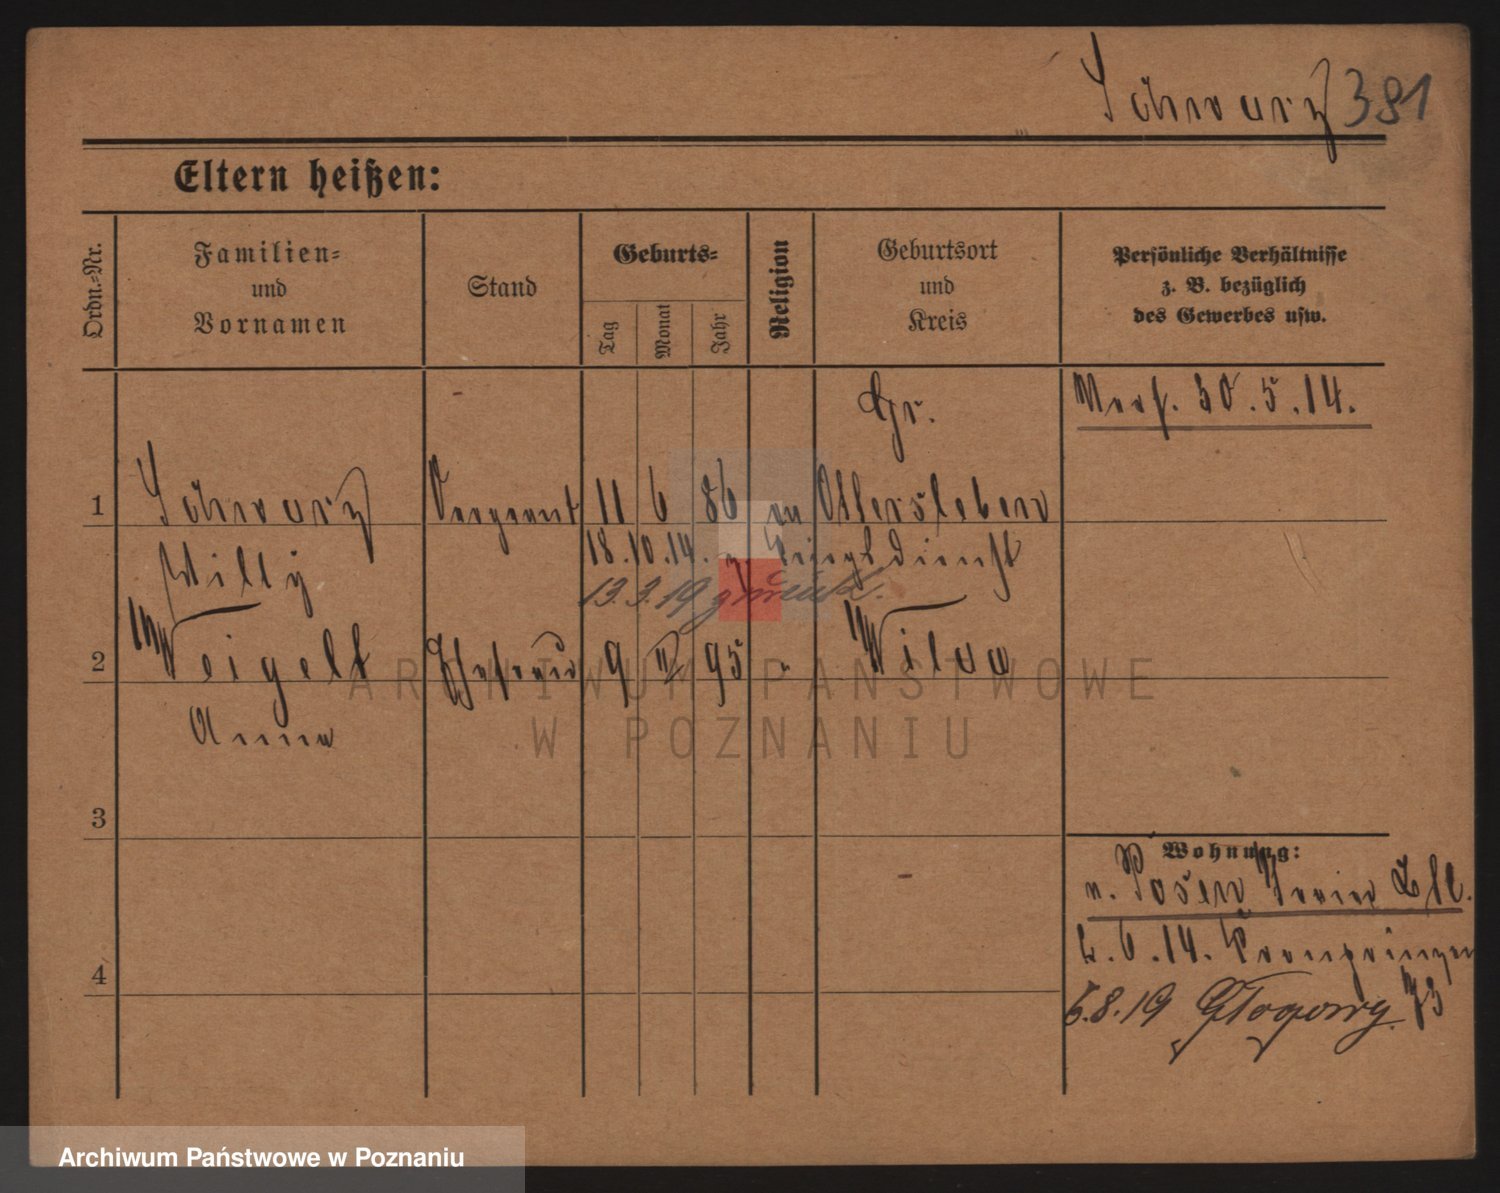 Schwarz 381
Eltern heißen:
Ordn.-Nr.
Familien-
und
Vornamen
Stand
Geburts-
Tag
Monat
Jahr
Religion
Geburtsort
und
Kreis
Persönliche Verhältnisse
z. B. bezüglich
des Gewerbes usw.
Gr.
30.5.14.
1 Schwarz Sergeant 11 6 86 Ottersleben
Willy
18.10.14. z. Kriegsdienst
13.3.19 zurück.
2 Weigelt Ehefrau 9 II 95 " Wilda
Anna
3
Wohnung:
n. Posen
6.14. Kronprinzen
4
5.8.19 Głogowy. 73
ARCHIWUM PAŃSTWOWE
W POZNANIU
Archiwum Państwowe w Poznaniu